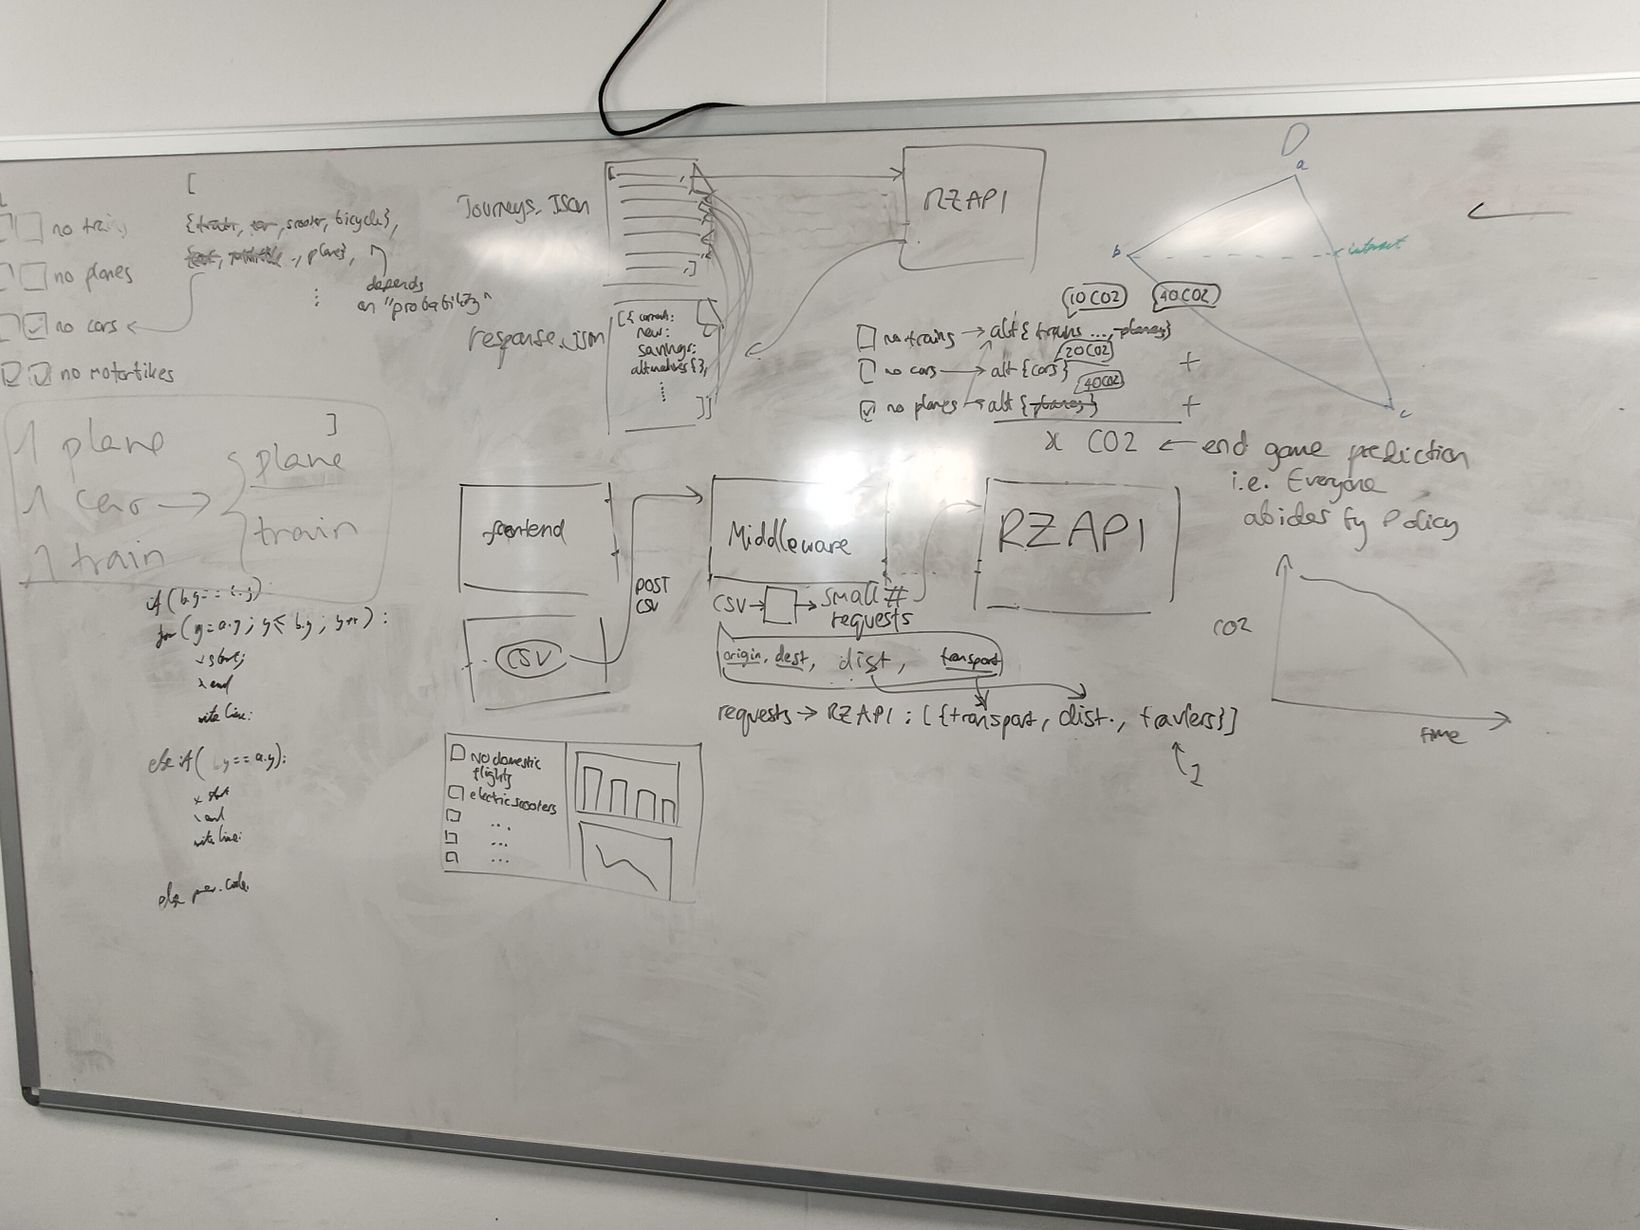 no trains
no planes
no cars
no motorbikes
[
scooter, bicycle},
., plane},
depends
on "probability"
]
1 plane
1 car
1 train
plane
train
if (b.y ==
for (y=a.y; y<= b.y; y++) :
x start;
x end
write line:
else if ( b.y == a.y):
x start
x end
write line:
else prev. code.
Journeys.Json
[
]
response.json
[{ current:
new:
savings:
alternatives{},
]]
RZAPI
10 CO2
40 CO2
no trains → alt { trains ..., planes}
20 CO2
no cars → alt {cars} +
40 CO2
no planes → alt {planes} +
x CO2 ← end game prediction
i.e. Everyone
abides by Policy
a
b
intersect
c
frontend
CSV
POST
CSV
Middleware
CSV → → small #
requests
RZAPI
origin, dest, dist, transport
requests → RZAPI : [{transport, dist., travlers}]
1
No domestic
flights
electric scooters
...
...
...
CO2
time